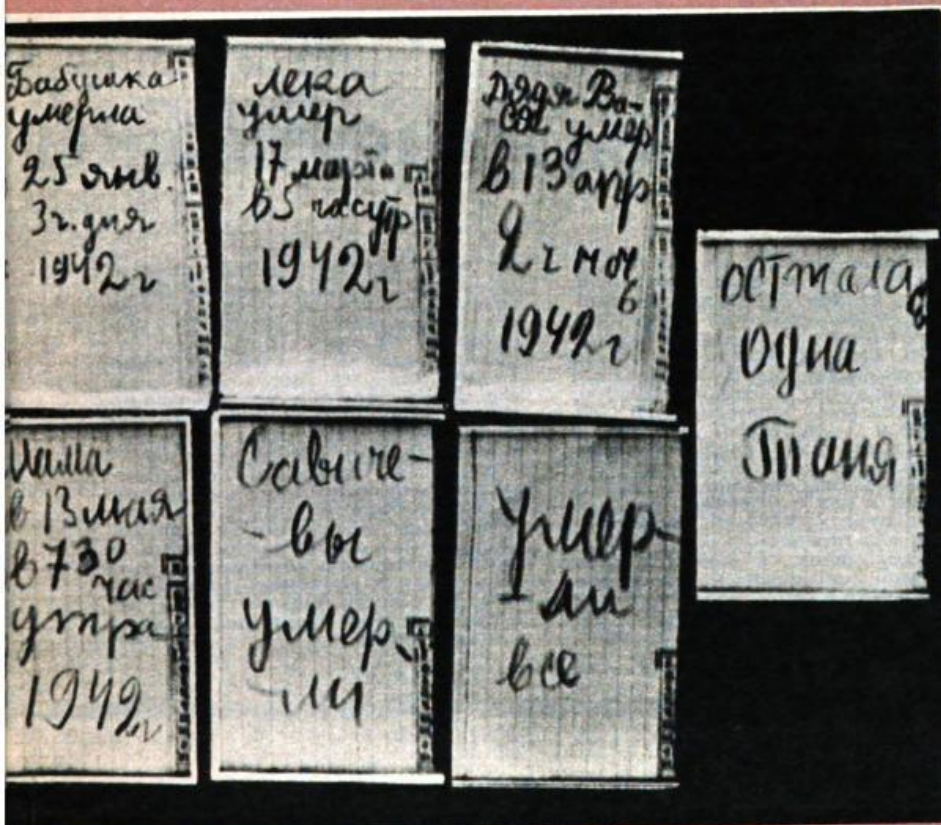 Бабушка
умерла
25 янв.
3 ч. дня
1942 г
Лека
умер
17 марта
в 5 час утр
1942 г
Дядя Ва-
-ся умер
в 13 апр
2 ч ноч
ь
1942 г
Мама
в 13 мая
в 7 30
час
утра
1942 г
Савиче-
-вы
умер-
-ли
Умер-
-ли
все
Осталась
одна
Таня